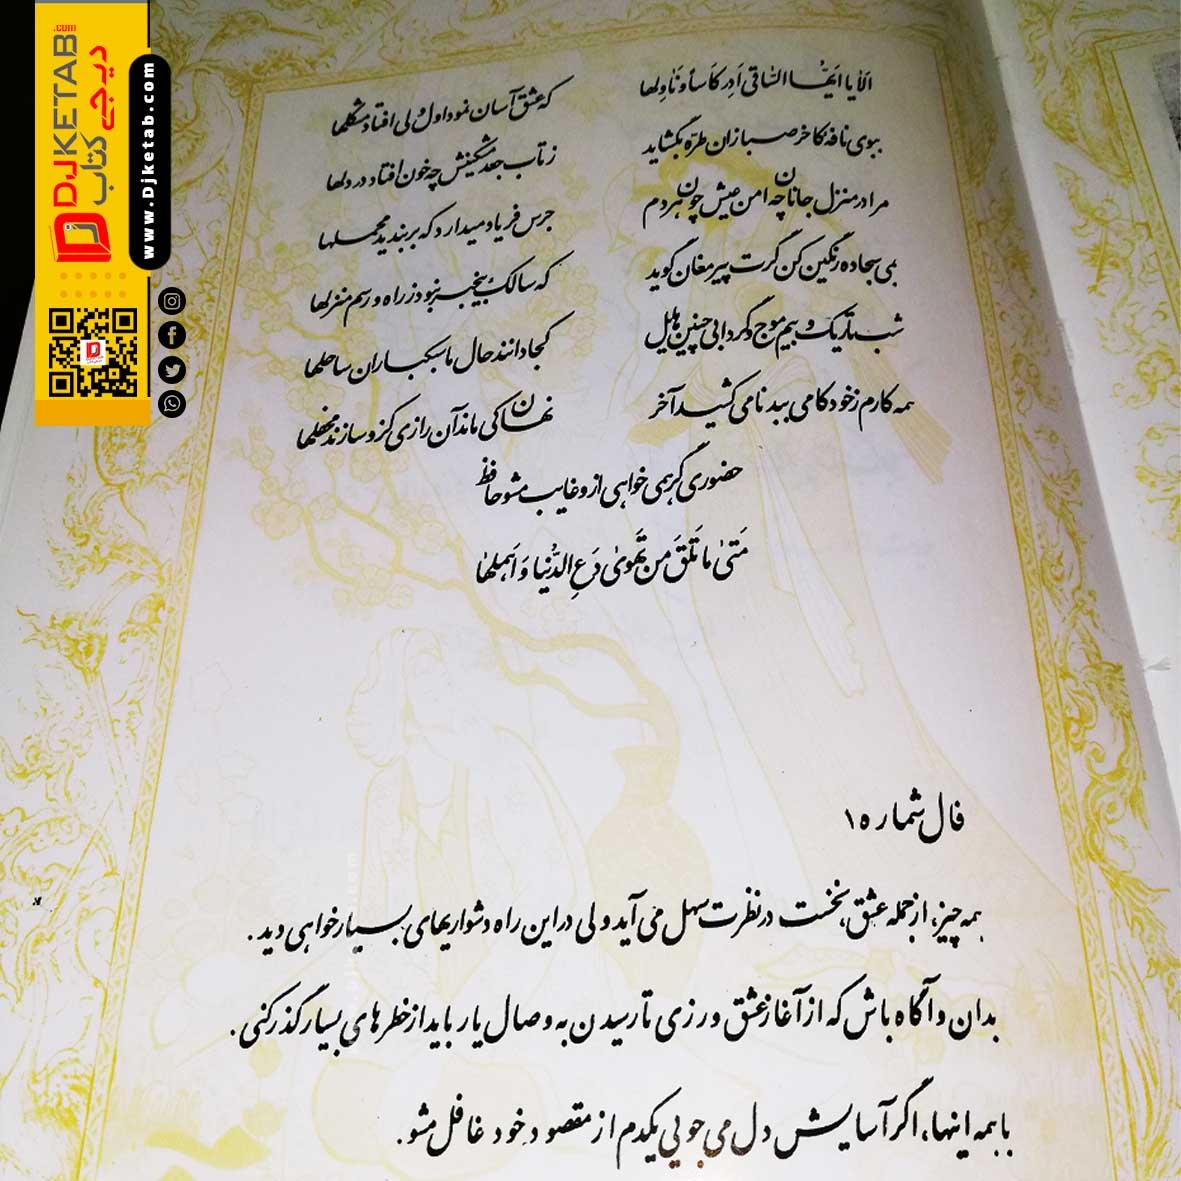 DJKETAB.com
دیجی کتاب
www.Djketab.com
اَلا یا اَیُّها السّاقی اَدِر کَاساً و ناوِلها
که عشق آسان نمود اول ولی افتاد مشکلها
ببوی نافه کاخر صبا زان طره بگشاید
ز تاب جعد مشکینش چه خون افتاد در دلها
مرا در منزل جانان چه امن عیش چون هر دم
جرس فریاد میدارد که بربندید محملها
بمی سجاده رنگین کن گرت پیر مغان گوید
که سالک بیخبر نبود ز راه و رسم منزلها
شب تاریک و بیم موج و گردابی چنین هایل
کجا دانند حال ما سبکباران ساحلها
همه کارم ز خود کامی ببدنامی کشید آخر
نهان کی ماند آن رازی کزو سازند محفلها
حضوری گر همی خواهی ازو غایب مشو حافظ
مَتیٰ ما تَلقَ مَن تَهویٰ دَعِ الدُّنیا وَ اَهمِلها
فال شماره ۱
همه چیز، از جمله عشق، نخست در نظرت سهل می آید ولی در این راه دشواریهای بسیار خواهی دید.
بدان و آگاه باش که از آغاز عشق ورزی تا رسیدن به وصال یار باید از خطرهای بسیار گذر کنی.
با همه اینها، اگر آسایش دل می جویی یکدم از مقصود خود غافل مشو.